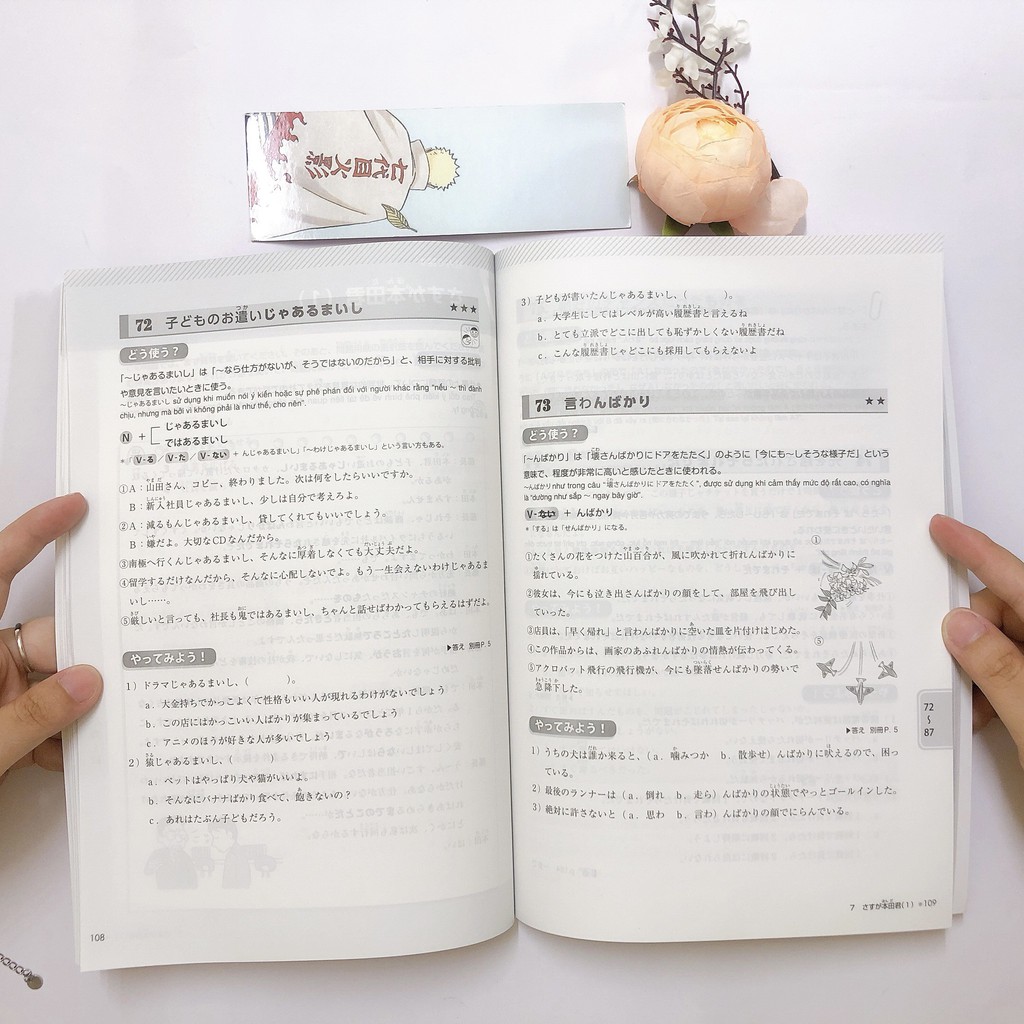 七代目火影
72 子どものお遣いじゃあるまいし ★★★
どう使う？
「～じゃあるまいし」は「～なら仕方がないが、そうではないのだから」と、相手に対する批判
や意見を言いたいときに使う。
～じゃあるまいし sử dụng khi muốn nói ý kiến hoặc sự phê phán đối với người khác rằng "nếu ~ thì đành
chịu, nhưng mà bởi vì không phải là như thế, cho nên".
N + じゃあるまいし
ではあるまいし
*「V-る／V-た／V-ない + んじゃあるまいし」「～わけじゃあるまいし」という言い方もある。
①A：山田さん、コピー、終わりました。次は何をしたらいいですか。
B：新入社員じゃあるまいし、少しは自分で考えろよ。
②A：減るもんじゃあるまいし、貸してくれてもいいでしょう。
B：嫌だよ。大切なCDなんだから。
③南極へ行くんじゃあるまいし、そんなに厚着しなくても大丈夫だよ。
④留学するだけなんだから、そんなに心配しないでよ。もう一生会えないわけじゃあるま
いし……。
⑤厳しいと言っても、社長も鬼ではあるまいし、ちゃんと話せばわかってもらえるはずだよ。
やってみよう！
▶答え 別冊P. 5
1）ドラマじゃあるまいし、（　　　）。
a．大金持ちでかっこよくて性格もいい人が現れるわけがないでしょう
b．この店にはかっこいい人ばかりが集まっているでしょう
c．アニメのほうが好きな人が多いでしょう
2）猿じゃあるまいし、（　　　）
a．ペットはやっぱり犬や猫がいいよ。
b．そんなにバナナばかり食べて、飽きないの？
c．あれはたぶん子どもだろう。
108
3）子どもが書いたんじゃあるまいし、（　　　）。
a．大学生にしてはレベルが高い履歴書と言えるね
b．とても立派でどこに出しても恥ずかしくない履歴書だね
c．こんな履歴書じゃどこにも採用してもらえないよ
73 言わんばかり ★★
どう使う？
「～んばかり」は「壊さんばかりにドアをたたく」のように「今にも～しそうな様子だ」という
意味で、程度が非常に高いと感じたときに使われる。
～んばかり như trong câu "壊さんばかりにドアをたたく", được sử dụng khi cảm thấy mức độ rất cao, có nghĩa
là "dường như sắp ~ ngay bây giờ".
V-ない + んばかり
*「する」は「せんばかり」になる。
①たくさんの花をつけた山百合が、風に吹かれて折れんばかりに
揺れている。
②彼女は、今にも泣き出さんばかりの顔をして、部屋を飛び出し
ていった。
③店員は、「早く帰れ」と言わんばかりに空いた皿を片付けはじめた。
④この作品からは、画家のあふれんばかりの情熱が伝わってくる。
⑤アクロバット飛行の飛行機が、今にも墜落せんばかりの勢いで
急降下した。
①
⑤
やってみよう！
▶答え 別冊P. 5
1）うちの犬は誰か来ると、（a．噛みつか　b．散歩せ）んばかりに吠えるので、困っ
ている。
2）最後のランナーは（a．倒れ　b．走ら）んばかりの状態でやっとゴールインした。
3）絶対に許さないと（a．思わ　b．言わ）んばかりの顔でにらんでいる。
72
～
87
7 さすが本田君（1）109